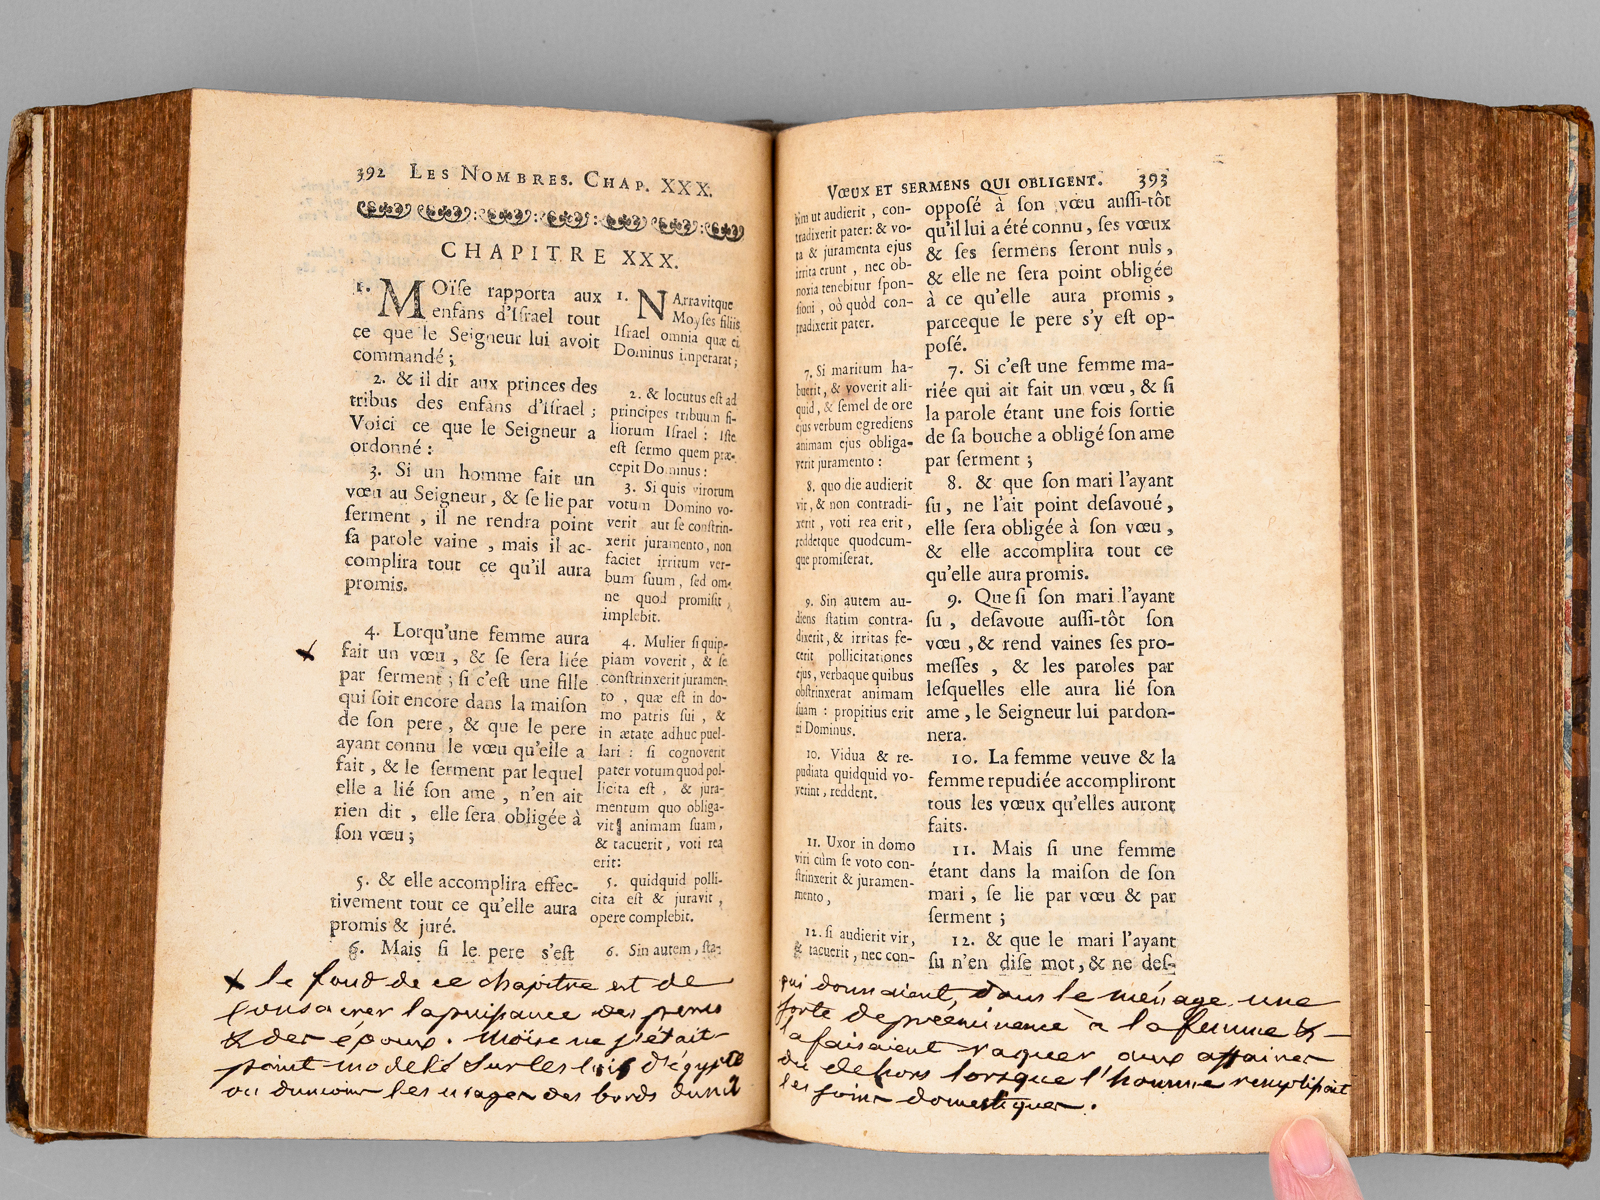 392 LES NOMBRES. CHAP. XXX.
CHAPITRE XXX.
1. MOïſe rapporta aux
enfans d'Iſrael tout
ce que le Seigneur lui avoit
commandé ;
2. & il dit aux princes des
tribus des enfans d'Iſrael ;
Voici ce que le Seigneur a
ordonné :
3. Si un homme fait un
vœu au Seigneur, & ſe lie par
ſerment , il ne rendra point
ſa parole vaine , mais il ac-
complira tout ce qu'il aura
promis.
4. Lorqu'une femme aura
fait un vœu , & ſe ſera liée
par ſerment ; ſi c'eſt une fille
qui ſoit encore dans la maiſon
de ſon pere , & que le pere
ayant connu le vœu qu'elle a
fait , & le ſerment par lequel
elle a lié ſon ame , n'en ait
rien dit , elle ſera obligée à
ſon vœu ;
5. & elle accomplira effec-
tivement tout ce qu'elle aura
promis & juré.
6. Mais ſi le pere s'eſt
1. NArravitque
Moyſes filiis
Iſrael omnia quæ ei
Dominus imperarat ;
2. & locutus eſt ad
principes tribuum fi-
liorum Iſrael : Iſte
eſt ſermo quem præ-
cepit Dominus :
3. Si quis virorum
votum Domino vo-
verit aut ſe conſtrin-
xerit juramento, non
faciet irritum ver-
bum ſuum , ſed om-
ne quod promiſit ,
implebit.
4. Mulier ſi quip-
piam voverit , & ſe
conſtrinxerit juramen-
to , quæ eſt in do-
mo patris ſui , &
in ætate adhuc puel-
lari : ſi cognoverit
pater votum quod pol-
licita eſt , & jura-
mentum quo obliga-
vit animam ſuam ,
& tacuerit , voti rea
erit:
5. quidquid polli-
cita eſt & juravit ,
opere complebit.
6. Sin autem , ſta-
x le fond de ce chapitre est de
consacrer la puissance des peres
& des époux. Moïse ne s'était
point modelé sur les lois d'égypte
ou du moins les usages des bords du nil
VŒUX ET SERMENS QUI OBLIGENT. 393
tim ut audierit , con-
tradixerit pater: & vo-
ta & juramenta ejus
irrita erunt , nec ob-
noxia tenebitur ſpon-
ſioni , eò quòd con-
tradixerit pater.
7. Si maritum ha-
buerit , & voverit ali-
quid , & ſemel de ore
ejus verbum egrediens
animam ejus obliga-
verit juramento :
8. quo die audierit
vir, & non contradi-
xerit , voti rea erit ,
reddetque quodcum-
que promiſerat.
9. Sin autem au-
diens ſtatim contra-
dixerit, & irritas fe-
cerit pollicitationes
ejus, verbaque quibus
obſtrinxerat animam
ſuam : propitius erit
ei Dominus.
10. Vidua & re-
pudiata quidquid vo-
verint , reddent.
11. Uxor in domo
viri cùm ſe voto con-
ſtrinxerit & juramen-
mento ,
12. ſi audierit vir,
& tacuerit , nec con-
oppoſé à ſon vœu auſſi-tôt
qu'il lui a été connu , ſes vœux
& ſes ſermens ſeront nuls ,
& elle ne ſera point obligée
à ce qu'elle aura promis ,
parceque le pere s'y eſt op-
poſé.
7. Si c'eſt une femme ma-
riée qui ait fait un vœu , & ſi
la parole étant une fois ſortie
de ſa bouche a obligé ſon ame
par ſerment ;
8. & que ſon mari l'ayant
ſu , ne l'ait point deſavoué,
elle ſera obligée à ſon vœu ,
& elle accomplira tout ce
qu'elle aura promis.
9. Que ſi ſon mari l'ayant
ſu , deſavoue auſſi-tôt ſon
vœu , & rend vaines ſes pro-
meſſes , & les paroles par
leſquelles elle aura lié ſon
ame , le Seigneur lui pardon-
nera.
10. La femme veuve & la
femme repudiée accompliront
tous les vœux qu'elles auront
faits.
11. Mais ſi une femme
étant dans la maiſon de ſon
mari , ſe lie par vœu & par
ſerment ;
12. & que le mari l'ayant
ſu n'en diſe mot, & ne deſ-
qui donnaient, dans le ménage une
sorte de prééminence à la femme &
la faisaient vaquer aux affaires
du dehors lorsque l'homme remplissait
les soins domestiques.